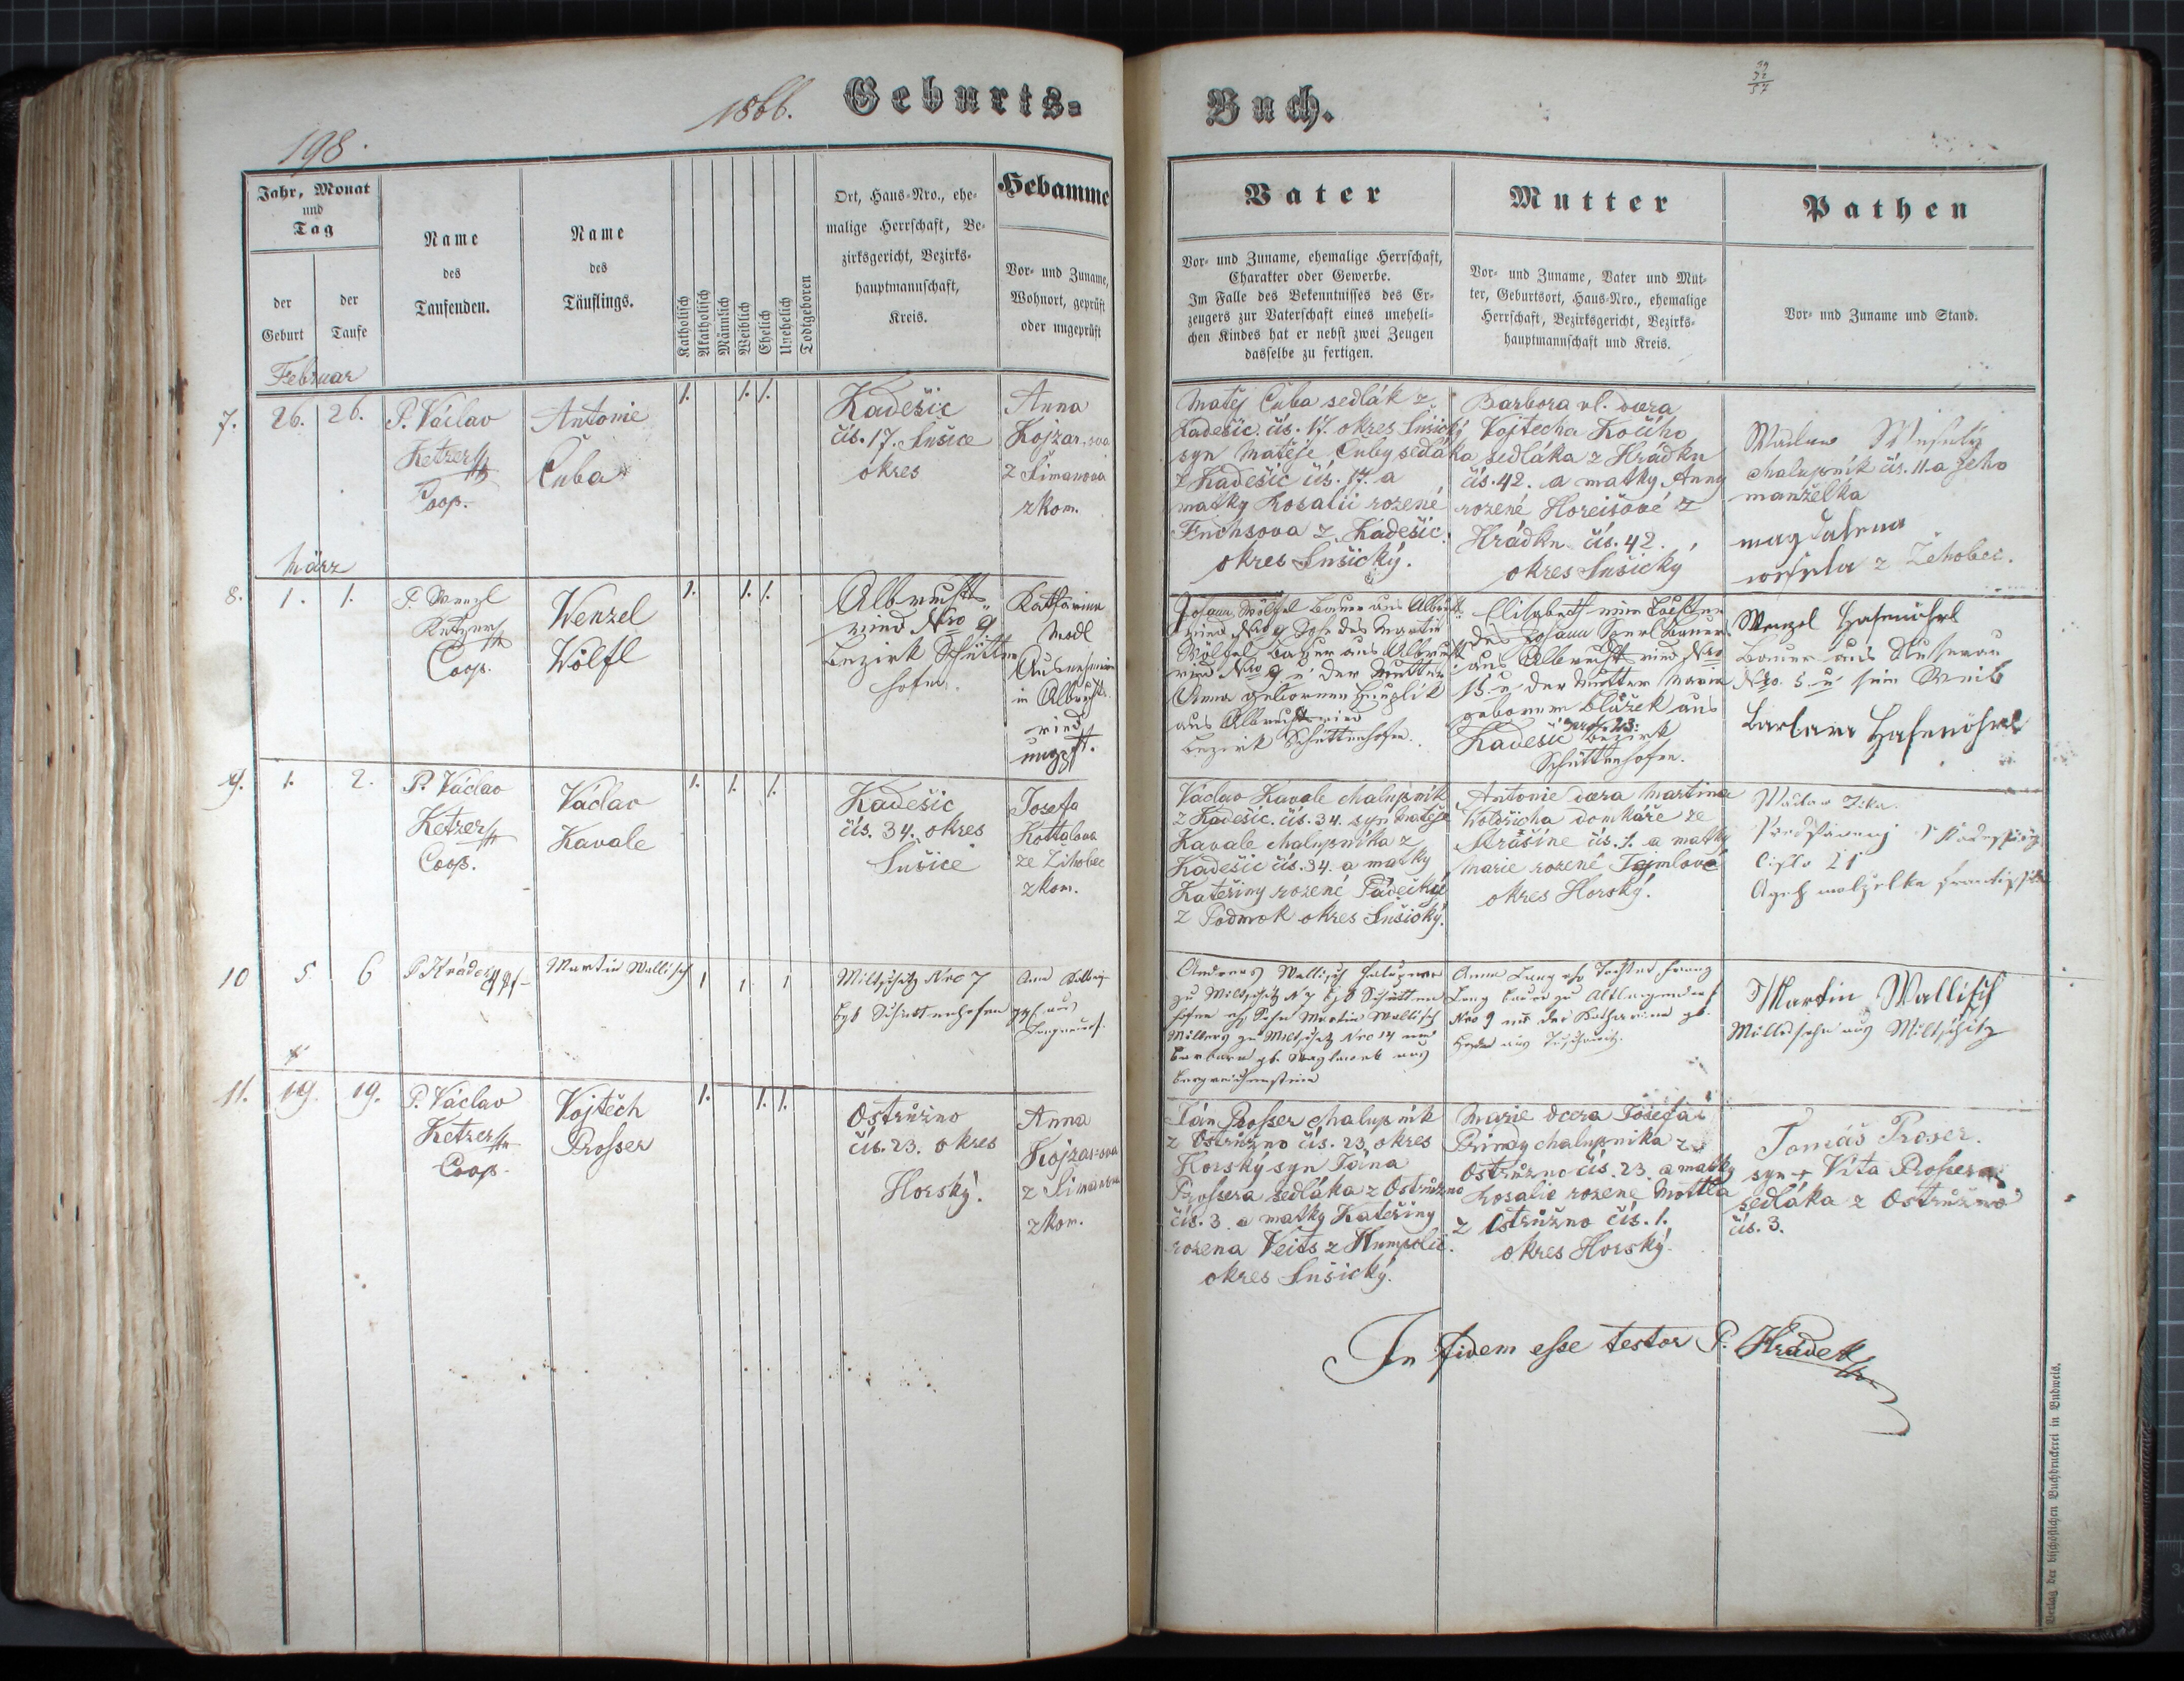 198.
1866.
Geburts-
Buch.
Jahr, Monat
und
Tag
der
Geburt
der
Taufe
Name
des
Taufenden.
Name
des
Täuflings.
Katholisch
Akatholisch
Männlich
Weiblich
Ehelich
Unehelich
Todtgeboren
Ort, Haus-Nro., ehe-
malige Herrschaft, Be-
zirksgericht, Bezirks-
hauptmannschaft,
Kreis.
Hebamme
Vor- und Zuname,
Wohnort, geprüft
oder ungeprüft
Vater
Vor- und Zuname, ehemalige Herrschaft,
Charakter oder Gewerbe.
Im Falle des Bekenntnisses des Er-
zeugers zur Vaterschaft eines uneheli-
chen Kindes hat er nebst zwei Zeugen
dasselbe zu fertigen.
Mutter
Vor- und Zuname, Vater und Mut-
ter, Geburtsort, Haus-Nro., ehemalige
Herrschaft, Bezirksgericht, Bezirks-
hauptmannschaft und Kreis.
Pathen
Vor- und Zuname und Stand.
Februar
7. 26. 26.
P. Václav
Ketzer
Coop.
Antonie
Čuba
1. 1. 1.
Kadešic
čís. 17. Sušice
okres
Anna
Kojzar-ova
z Šimanova
zkom.
Matěj Čuba sedlák z
Kadešic čís. 17. okres Sušický
syn Matěje Čuby sedláka
z Kadešic čís. 17. a
matky Rosalii rozené
Fuchsova z Kadešic.
okres Sušický.
Barbora vl. dcera
Vojtecha Kočího
sedláka z Hrádku
čís. 42. a matky Anny
rozené Horeišové z
Hrádku čís. 42.
okres Sušický
chalupník čís. 11. a jeho
manželka
magdalena
z Žehobec.
März
8. 1. 1.
P. Wenzl
Ketzer
Coop.
Wenzel
Wölfl
1. 1. 1.
Albrechts
ried Nro 9
Bezirk Schütten
hofen.
Katharina
Modl
in Albrechts
ried
ungpft.
Johann Wölfel Bauer aus Albrechts
ried Nro 9 Sohn des Martin
Wölfel Bauer aus Albrechts
ried Nro 9 u der Mutter
Anna geborenen
aus Albrechtsried
Bezirk Schüttenhofen.
Elisabeth eine Tochter
des Johann Bauers
aus Albrechtsried Nro
15. u der Mutter Maria
geborenen Blažek aus
Kadešic Nro 23. Bezirk
Schüttenhofen.
Wenzel Hasenöhrl
Bauer aus
Nro. 5. u sein Weib
Barbara Hasenöhrl
9. 1. 2.
P. Václav
Ketzer
Coop.
Václav
Kavale
1. 1. 1.
Kadešic
čís. 34. okres
Sušice
Josefa
Kottalova
ze Žihobec
zkom.
Václav Kavale chalupník
z Kadešic. čís. 34. syn Matěje
Kavale chalupníka z
Kadešic čís. 34. a matky
Kateřiny rozené
z Podmok okres Sušický.
Antonie dcera Martina
Koldřicha domkáře ze
Strašíne čís. 1. a matky
Marie rozené
okres Horský.
10 5. 6
P Hrádek
Martin Wallisch
1 1 1
Miltschitz Nro 7
Schüttenhofen
Anna
Andreas Wallisch
zu Miltschitz N 7 Schütten
hofen Sohn Martin Wallisch
Müllers zu Miltschitz Nro 14 und
Barbara
Bergreichenstein
Anna Lang Tochter Franz
Lang Bauer zu Altlangendorf
Nro 9 und der Katharina
Martin Wallisch
Müllersohn aus Miltschitz
11. 19. 19.
P. Václav
Ketzer
Coop.
Vojtěch
Prosser
1. 1. 1.
Ostružno
čís. 23. okres
Horský.
Anna
Kojzar-ova
z Šimanova
zkom.
Ján Prosser chalupník
z Ostružno čís. 23. okres
Horský syn Jána
Prossera sedláka z Ostružno
čís. 3. a matky Kateřiny
rozena Veits z Humpolic.
okres Sušický.
Marie dcera Josefa
chalupníka z
Ostružno čís. 23. a matky
Rosalie rozene Mottla
z Ostružno čís. 1.
okres Horský.
Tomáš Proser.
syn + Víta Prossera
sedláka z Ostružno
čís. 3.
In fidem esse testor P. Hrádek
Verlag der bischöflichen Buchdruckerei in Budweis.